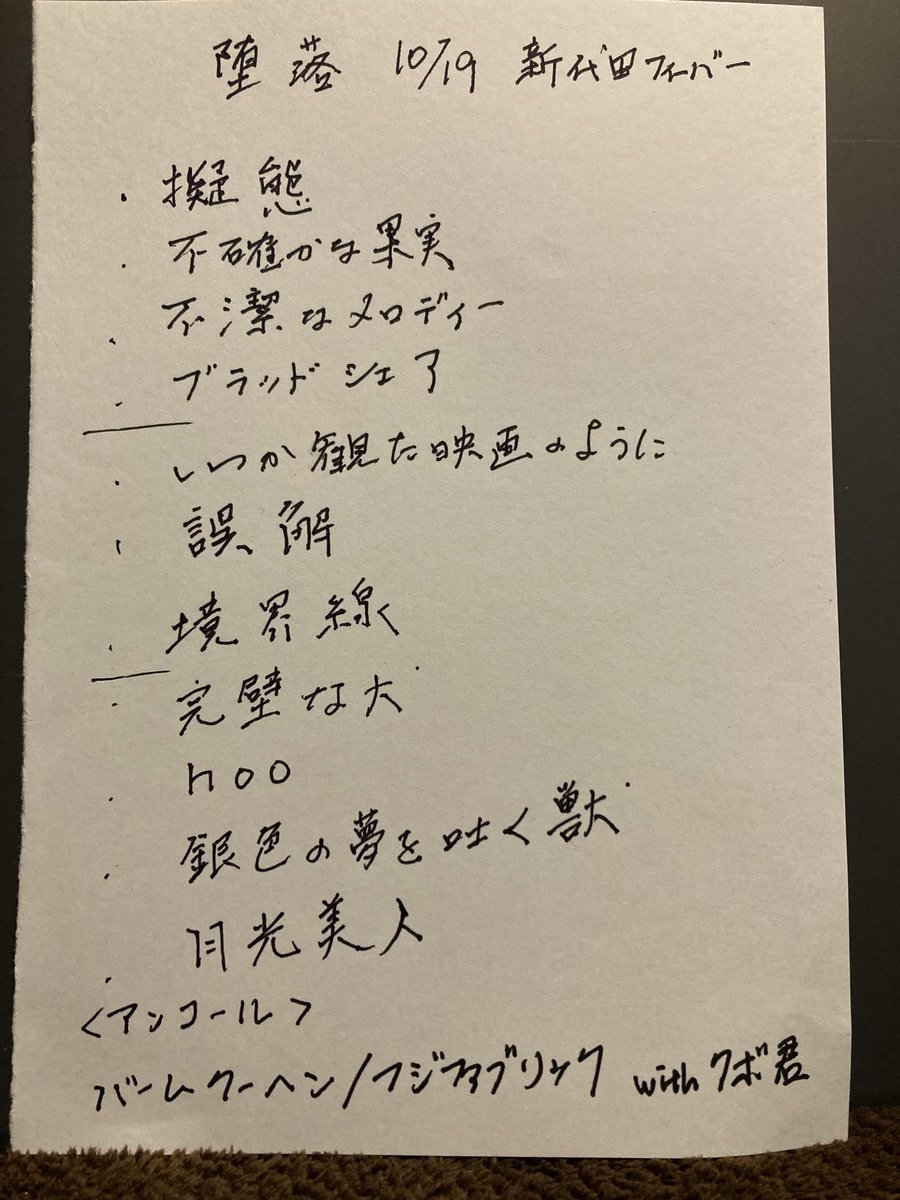 堕落 10/19 新代田フィーバー
・擬態
・不確かな果実
・不潔なメロディー
・ブラッドシェア
・いつか観た映画のように
・誤解
・境界線
・完璧な犬
・noo
・銀色の夢を吐く獣
・月光美人
<アンコール>
バームクーヘン/フジファブリック withクボ君